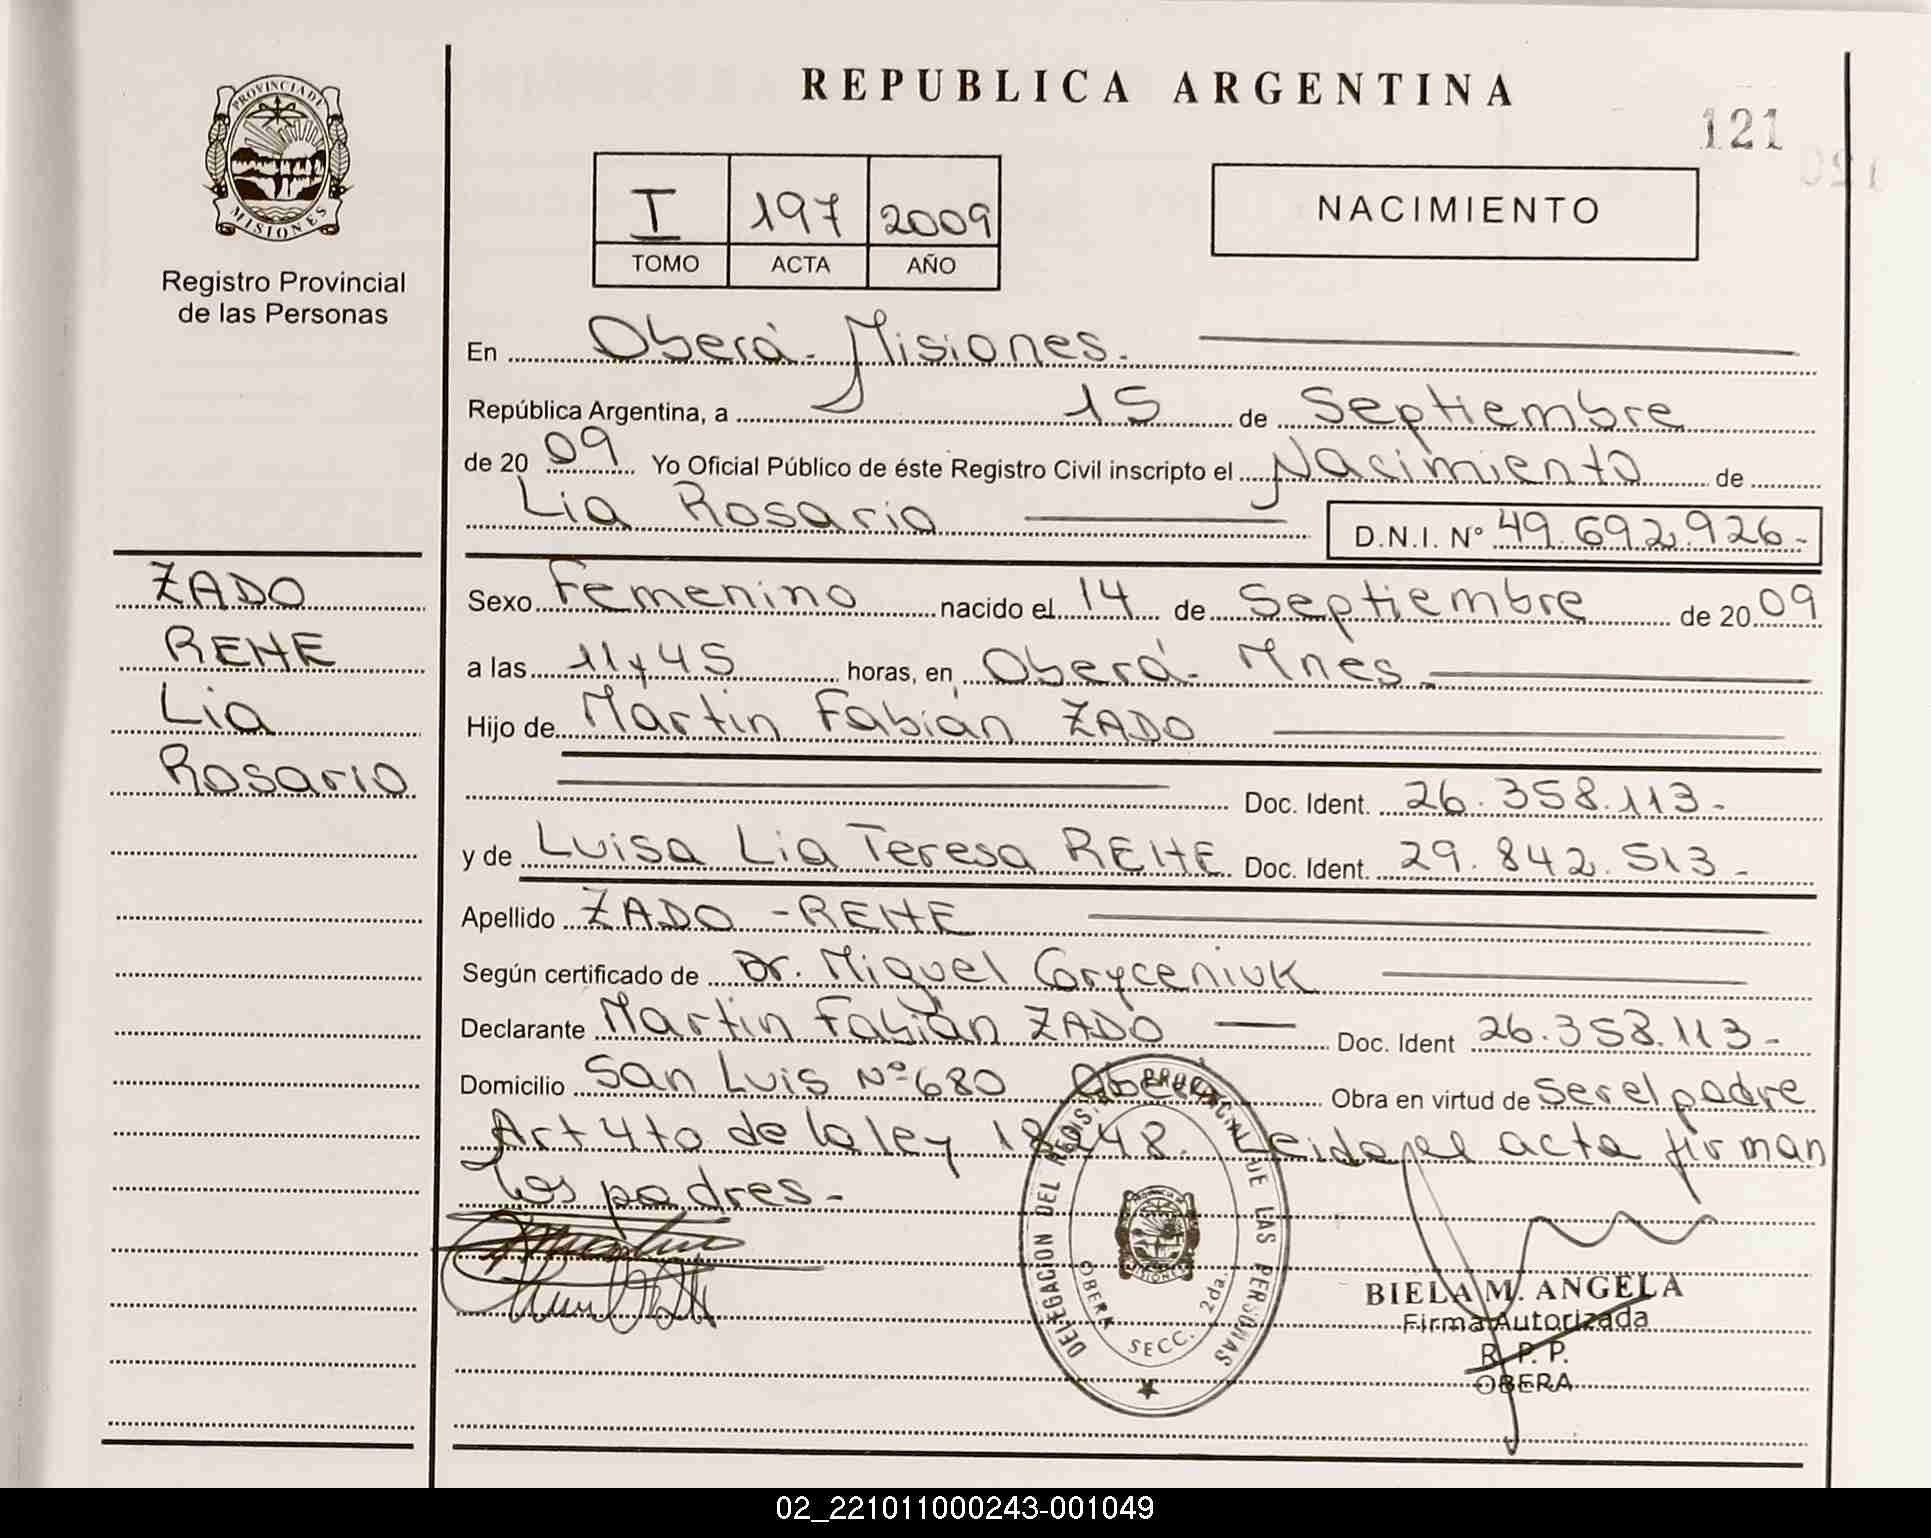 REPUBLICA ARGENTINA
121
PROVINCIA DE
MISIONES
Registro Provincial
de las Personas
I 197 2009
TOMO ACTA AÑO
NACIMIENTO
En Oberá - Misiones.
República Argentina, a 15 de Septiembre
de 2009 Yo Oficial Público de éste Registro Civil inscripto el Nacimiento de
Lia Rosario D.N.I. Nº 49.692.926.-
ZADO
REHE
Lia
Rosario
Sexo Femenino nacido el 14 de Septiembre de 2009
a las 11 y 45 horas, en Oberá - Mnes.
Hijo de Martin Fabián ZADO
Doc. Ident. 26.358.113.-
y de Luisa Lia Teresa REHE Doc. Ident. 29.842.513.-
Apellido ZADO - REHE
Según certificado de Dr. Miguel Coryceniuk
Declarante Martin Fabián ZADO Doc. Ident 26.358.113.-
Domicilio San Luis Nº 680 Oberá Obra en virtud de ser el padre
Art 4to de la ley 18248. Leida el acta firman
los padres.-
DELEGACION DEL REGISTRO PROVINCIAL DE LAS PERSONAS
OBERA SECC. 2da.
BIELA M. ANGELA
Firma Autorizada
R. P. P.
OBERA
02_221011000243-001049